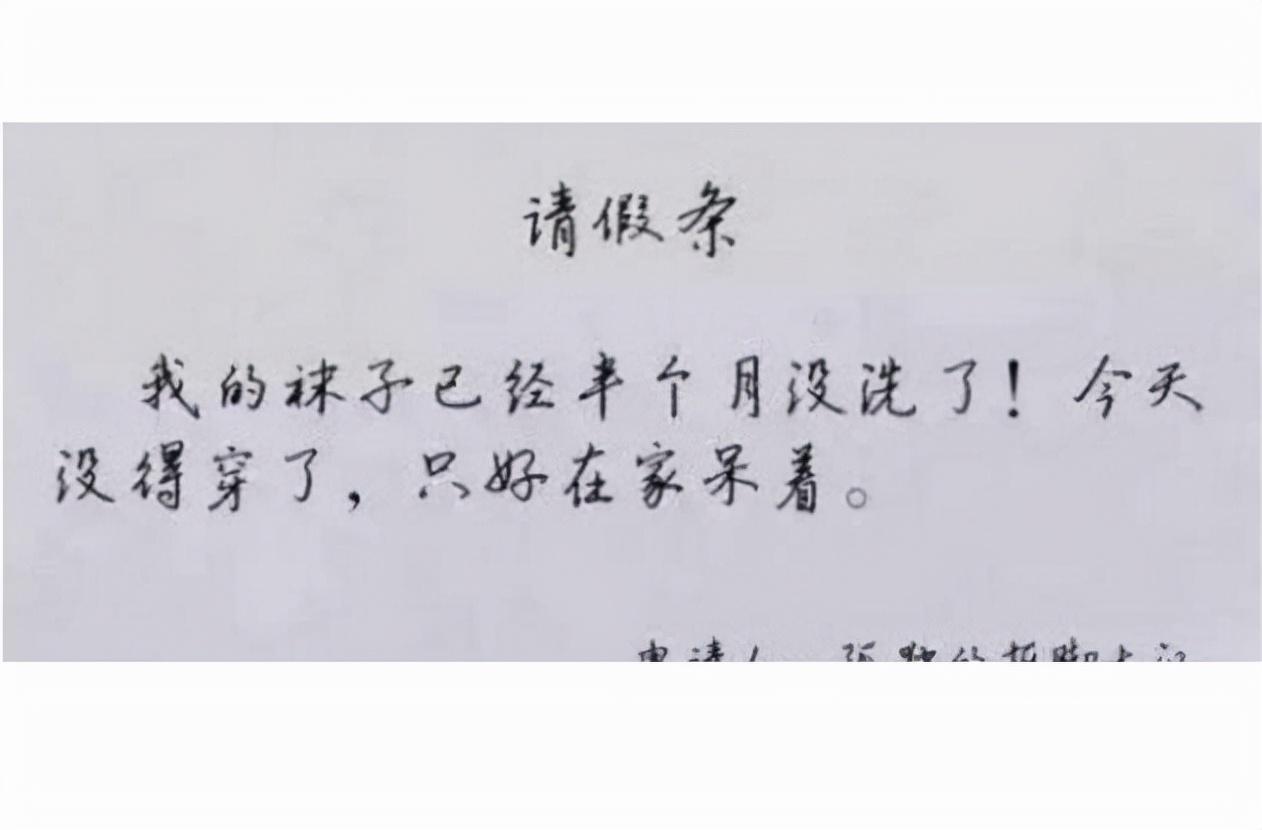 请假条
我的袜子已经半个月没洗了！今天
没得穿了，只好在家呆着。
申请人